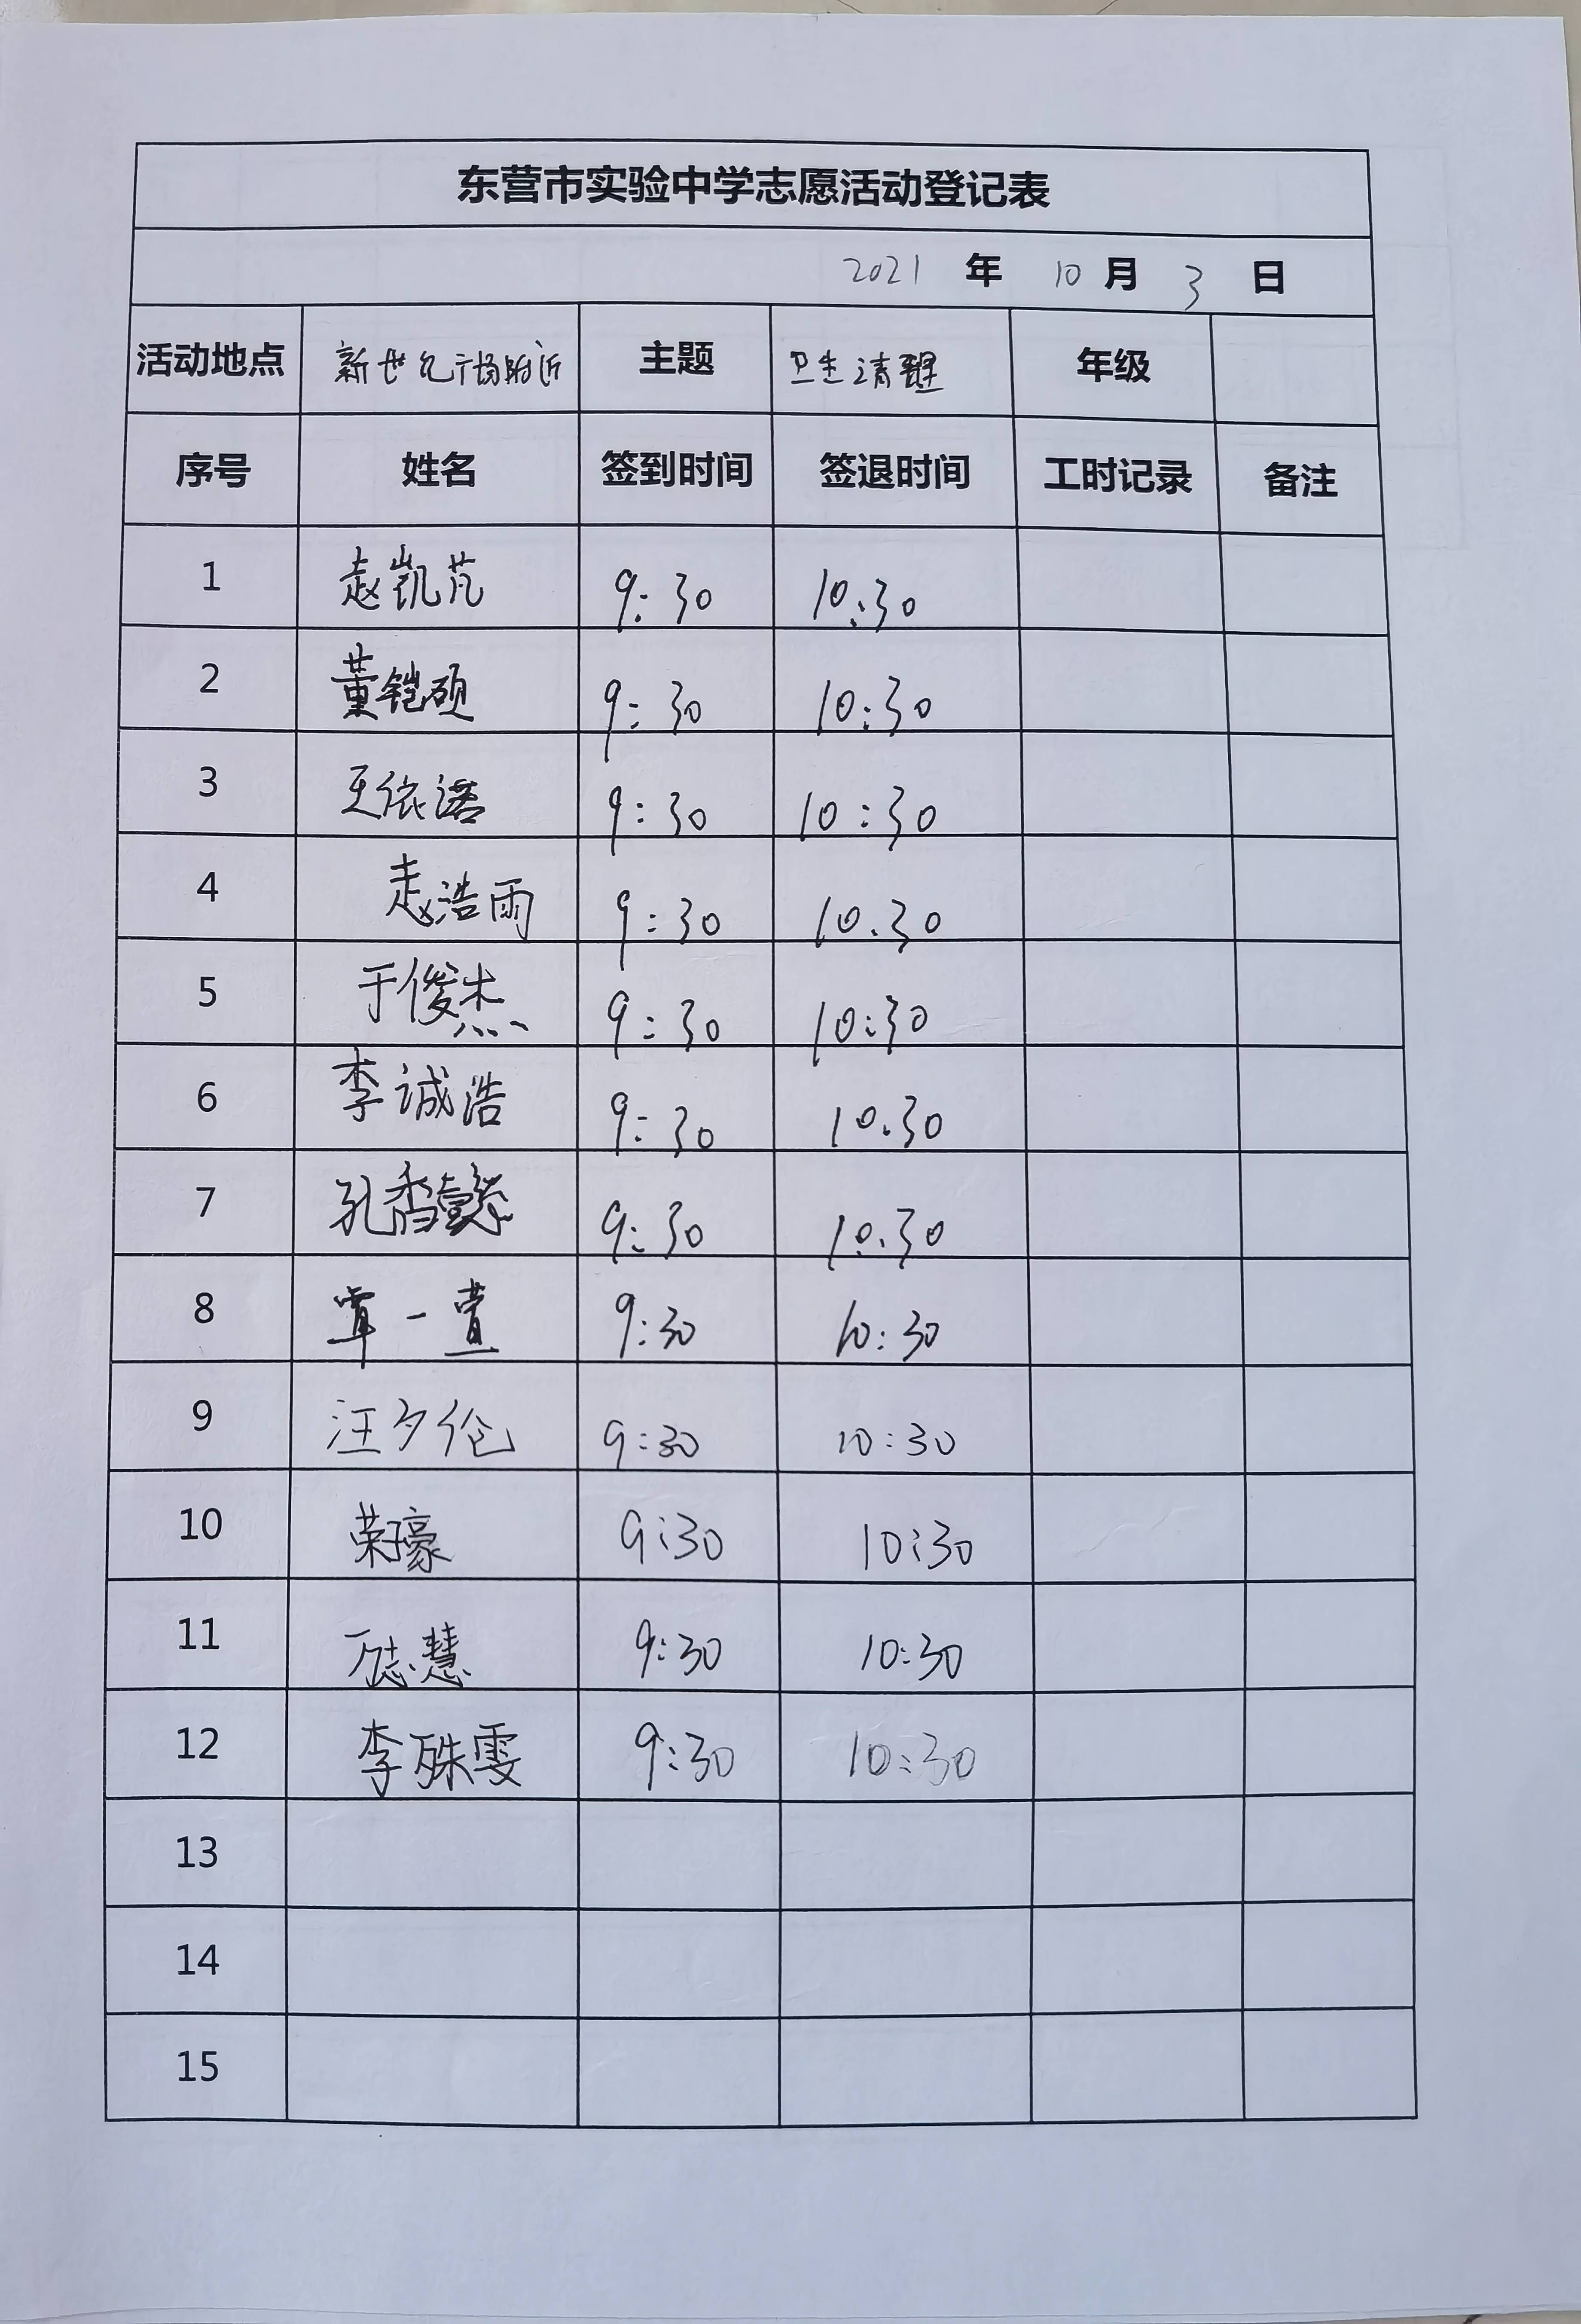 东营市实验中学志愿活动登记表
2021 年 10 月 3 日
活动地点 新世纪广场附近 主题 卫生清理 年级
序号 姓名 签到时间 签退时间 工时记录 备注
1 赵凯芃 9:30 10:30
2 董铠硕 9:30 10:30
3 王依诺 9:30 10:30
4 赵浩雨 9:30 10.30
5 于俊杰 9:30 10:30
6 李诚浩 9:30 10.30
7 孔香懿 9:30 10.30
8 一萱 9:30 10:30
9 汪夕伦 9:30 10:30
10 荣子豪 9:30 10:30
11 万志慧 9:30 10:30
12 李殊雯 9:30 10:30
13
14
15